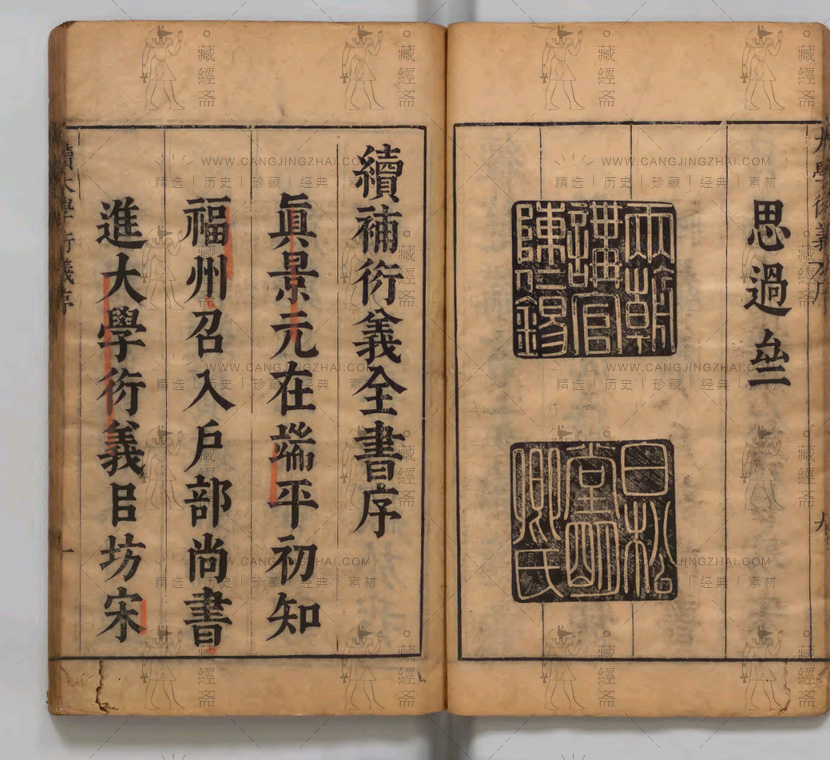 大學衍義序
九
思過亝
兩朝
講官
陳仁錫
白松
堂明
卿氏
續補衍義全書序
眞景元在端平初知
福州召入戶部尚書
進大學衍義㠯坊宋
續大學衍義序
一
WWW.CANGJINGZHAI.COM
精选｜历史｜珍藏｜经典｜素材
藏經斋